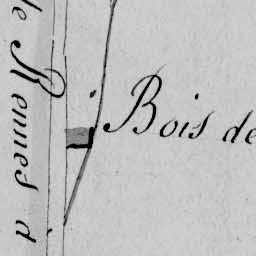 de Rennes à
Bois de